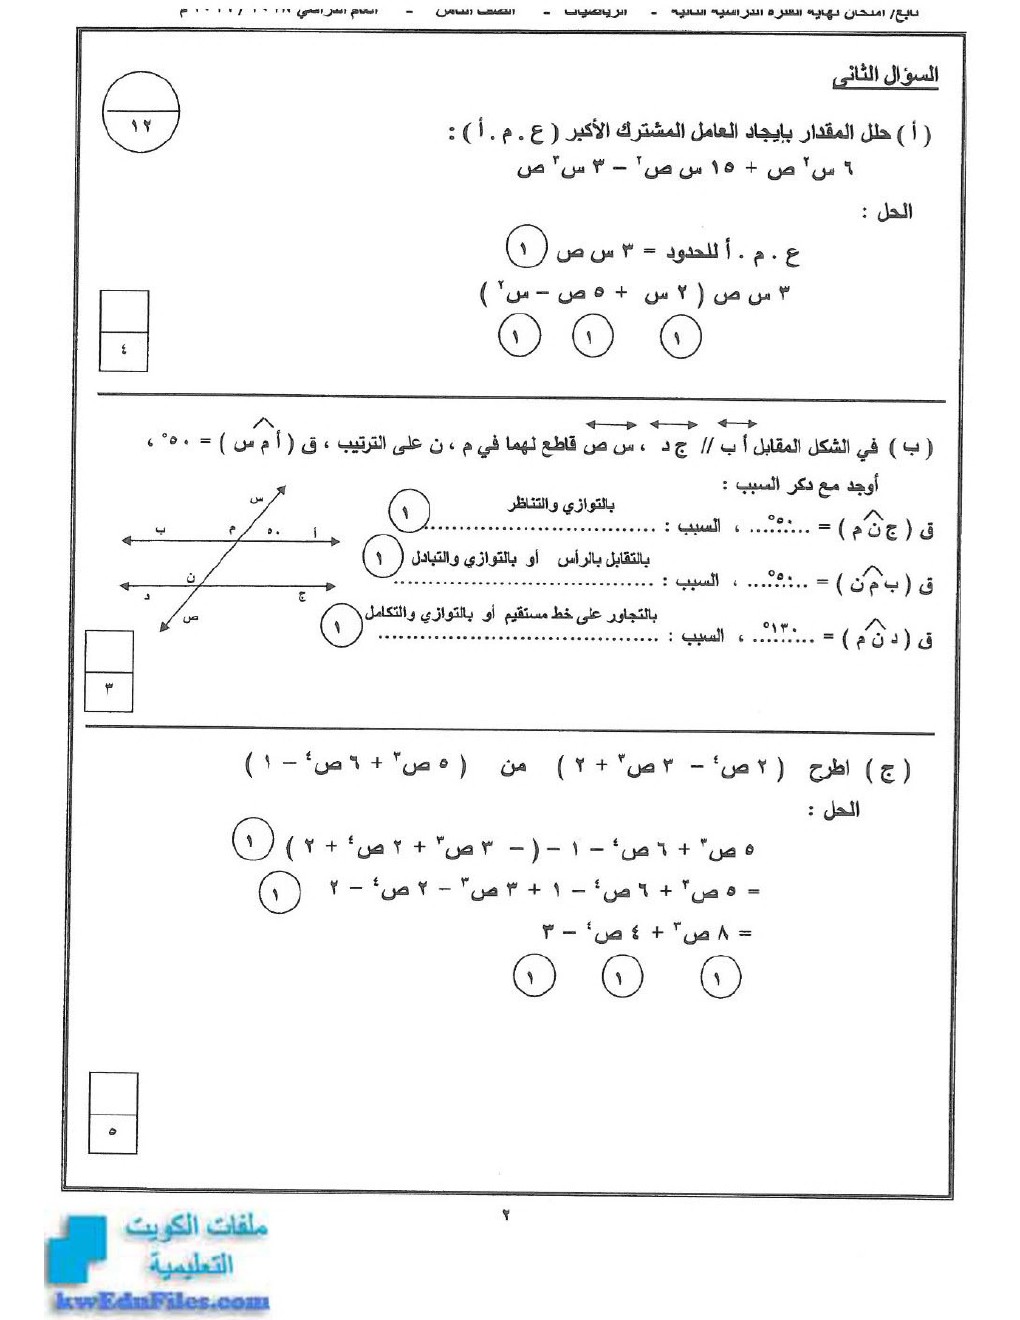 تابع/ امتحان نهاية الفترة الدراسية الثانية - الرياضيات - الصف الثامن - العام الدراسي
السؤال الثانى
١٢
( أ ) حلل المقدار بإيجاد العامل المشترك الأكبر ( ع . م . أ ) :
٦ س² ص + ١٥ س ص² − ٣ س³ ص
الحل :
ع . م . أ للحدود = ٣ س ص ١
٣ س ص ( ٢ س + ٥ ص − س² )
١ ١ ١
٤
( ب ) في الشكل المقابل أ ب // ج د ، س ص قاطع لهما في م ، ن على الترتيب ، ق ( أ م س ) = ٥٠° ،
أوجد مع ذكر السبب :
ق ( ج ن م ) = ٥٠° ، السبب : بالتوازي والتناظر ١
ق ( ب م ن ) = ٥٠° ، السبب : بالتقابل بالرأس أو بالتوازي والتبادل ١
ق ( د ن م ) = ١٣٠° ، السبب : بالتجاور على خط مستقيم أو بالتوازي والتكامل ١
س
أ ٥٠ م ب
ن
ج د
ص
٣
( ج ) اطرح ( ٢ ص⁴ − ٣ ص³ + ٢ ) من ( ٥ ص³ + ٦ ص⁴ − ١ )
الحل :
٥ ص³ + ٦ ص⁴ − ١ − ( − ٣ ص³ + ٢ ص⁴ + ٢ ) ١
= ٥ ص³ + ٦ ص⁴ − ١ + ٣ ص³ − ٢ ص⁴ − ٢ ١
= ٨ ص³ + ٤ ص⁴ − ٣
١ ١ ١
٥
٢
ملفات الكويت
التعليمية
kwEduFiles.com